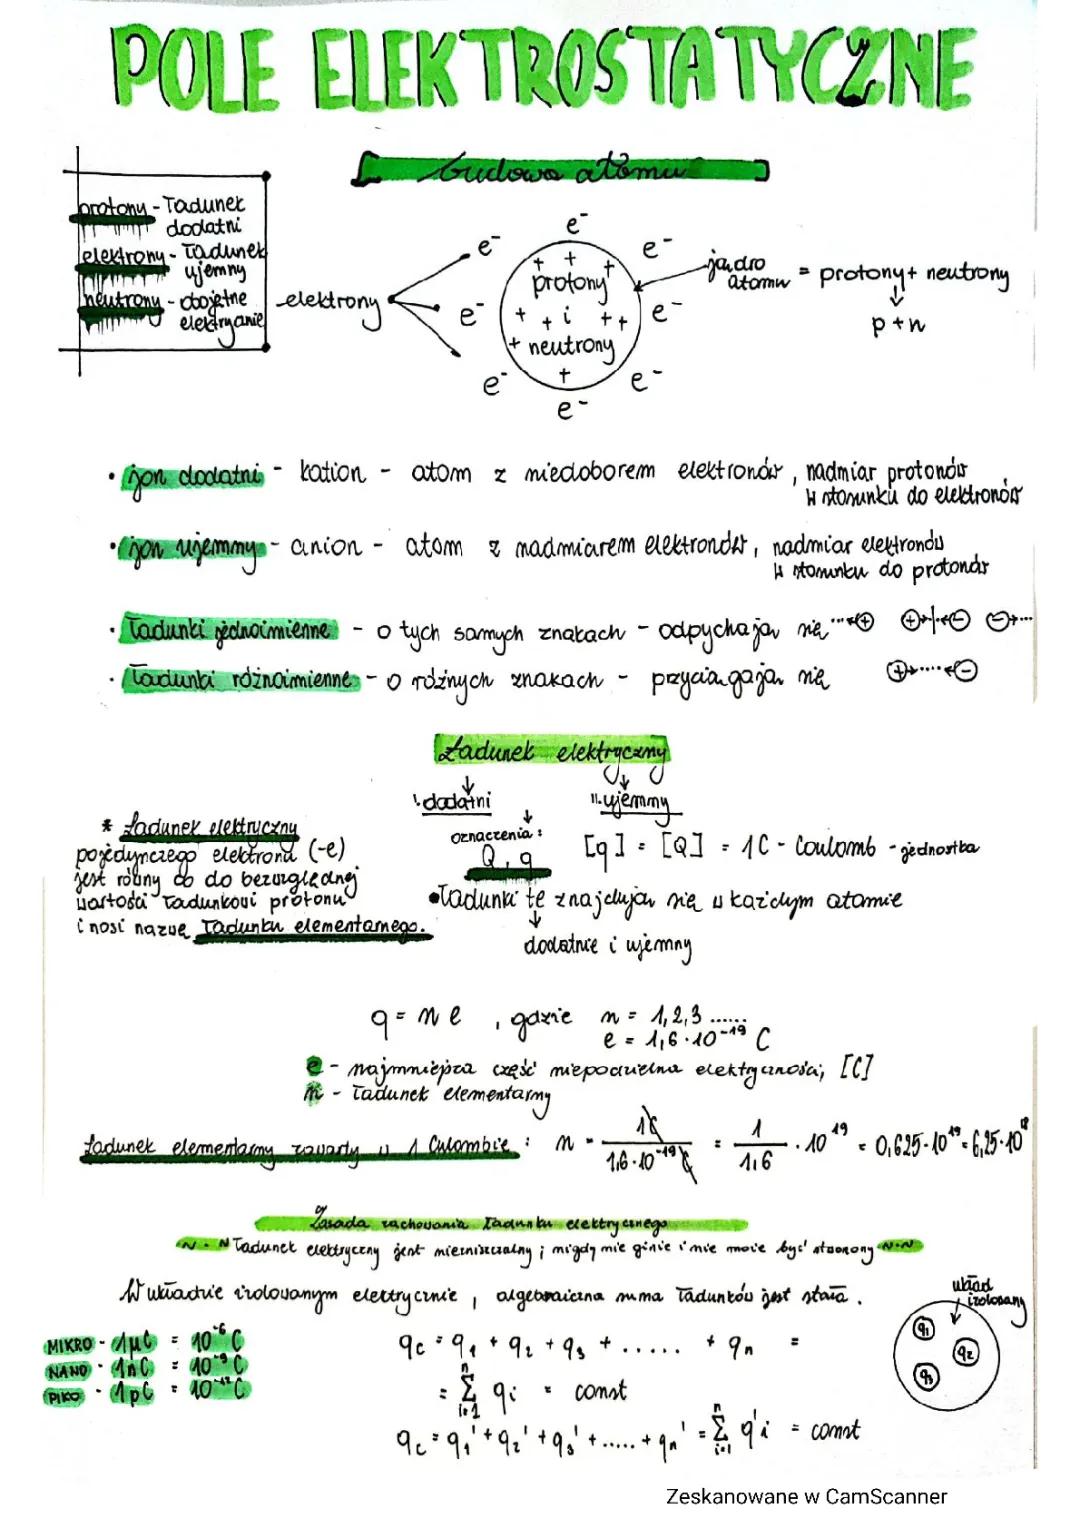 POLE ELEKTROSTATYCZNE
budowa atomu
protony - ładunek
dodatni
elektrony - ładunek
ujemny
neutrony - obojętne
elektrycznie
elektrony
e⁻
e⁻
e⁻
e⁻
e⁻
e⁻
e⁻
e⁻
+ + +
protony
+ + i + +
+ neutrony
+
jądro
atomu
= protony + neutrony
↓
p + n
• jon dodatni - kation - atom z niedoborem elektronów, nadmiar protonów
w stosunku do elektronów
• jon ujemny - anion - atom z nadmiarem elektronów, nadmiar elektronów
w stosunku do protonów
• ładunki jednoimienne - o tych samych znakach - odpychają się
• ładunki różnoimienne - o różnych znakach - przyciągają się
Ładunek elektryczny
I. dodatni
II. ujemny
oznaczenia:
Q, q
[q] = [Q] = 1C - Coulomb - jednostka
* Ładunek elektryczny
pojedynczego elektronu (-e)
jest równy co do bezwzględnej
wartości ładunkowi protonu
i nosi nazwę ładunku elementarnego.
• ładunki te znajdują się w każdym atomie
↓
dodatnie i ujemny
q = n e , gdzie n = 1,2,3 ......
e = 1,6 · 10⁻¹⁹ C
e - najmniejsza część niepodzielna elektryczności, [C]
n - ładunek elementarny
Ładunek elementarny zawarty w 1 Culombie: n = 1C / 1,6·10⁻¹⁹ C = 1 / 1,6 · 10¹⁹ = 0,625·10¹⁹ = 6,25·10¹⁸
Zasada zachowania ładunku elektrycznego
~ · ~ Ładunek elektryczny jest niezniszczalny; nigdy nie ginie i nie może być stworzony ~·~
W układzie izolowanym elektrycznie, algebraiczna suma ładunków jest stała.
układ
izolowany
q₁
q₂
q₃
MIKRO - 1μC = 10⁻⁶ C
NANO - 1nC = 10⁻⁹ C
PIKO - 1pC = 10⁻¹² C
qc = q₁ + q₂ + q₃ + ...... + qn =
= Σ qi = const
n
i=1
qc = q₁' + q₂' + q₃' + ..... + qn' = Σ q'i = const
n
i=1
Zeskanowane w CamScanner